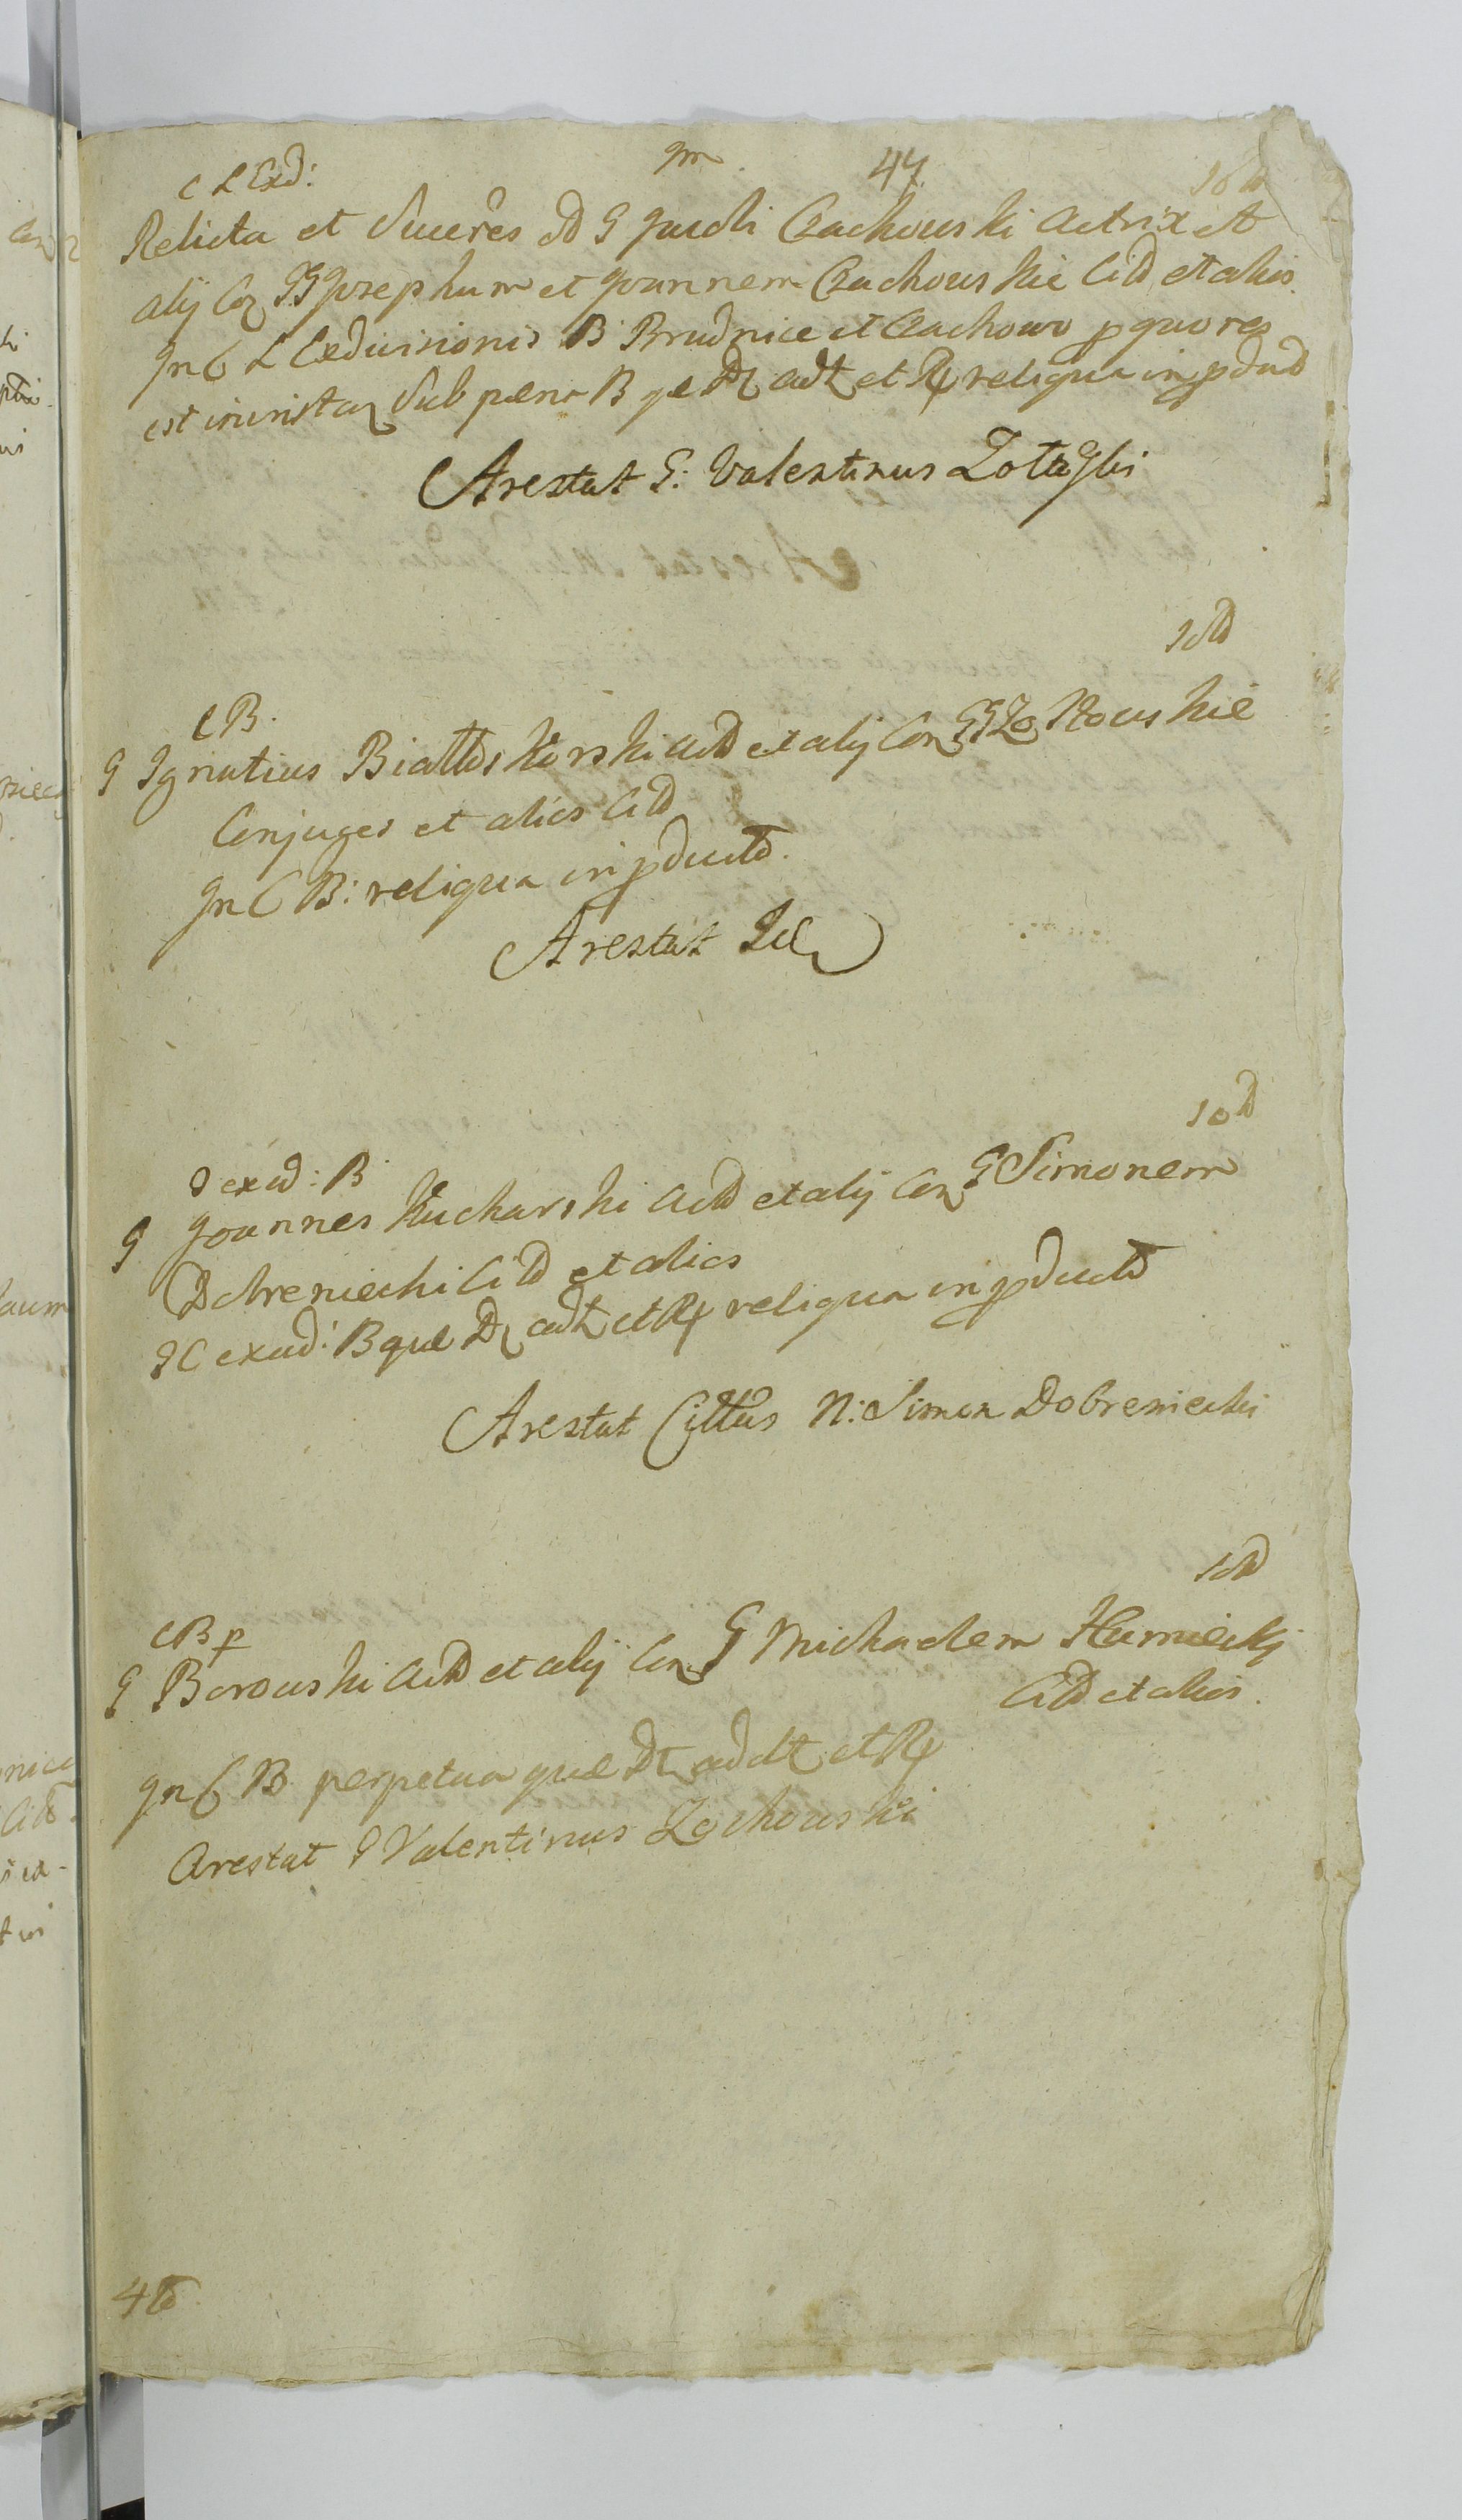 C L Exd: Im. 47. 10td
Relicta et Succēres olī G Jacobi Czachowski Actrix et
alij Con GG Josephum et Joannem Czachowskie Citt et alios.
In C L Exdivisionis B Brudnice et Czachowo p quo res
est in instan Sub pæna B qæ Dt adt et Rp reliqua in pdud
Arestat G: Valentinus
10td
C B.
G Ignatius Białłoskorski Actt et alij Con GG
Conjuges et alios Citt
In C B: reliqua in pductō.
Arestat Idem
10td
exud: B
G Joannes Kucharski Actt et alij Con G Simonem
Dobreniecki Citt et alios
I C exud: B quæ Dt adt et Rp reliqua in pductō
Arestat Cittus N: Simon Dobreniecki
10td
C B p
G Borowski Actt et alij Con G Michaelem Humiecky
Citt et alios.
In C B perpetua quæ Dt addt et Rp
Arestat G Valentinus Zochowski
4to